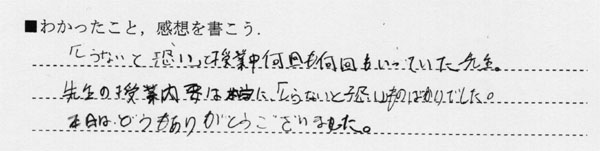 ■わかったこと，感想を書こう．
「しらないと恐い」と授業中何回も何回もいっていた先生。
先生の授業内容は本当に、「しらないと恐い」ものばかりでした。
本日は、どうもありがとうございました。